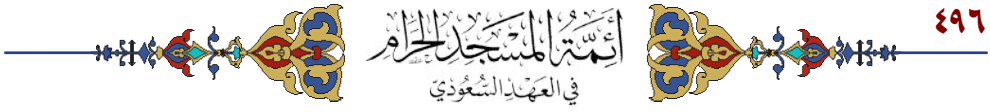 ٤٩٦
أئمة المسجد الحرام
في العهد السعودي